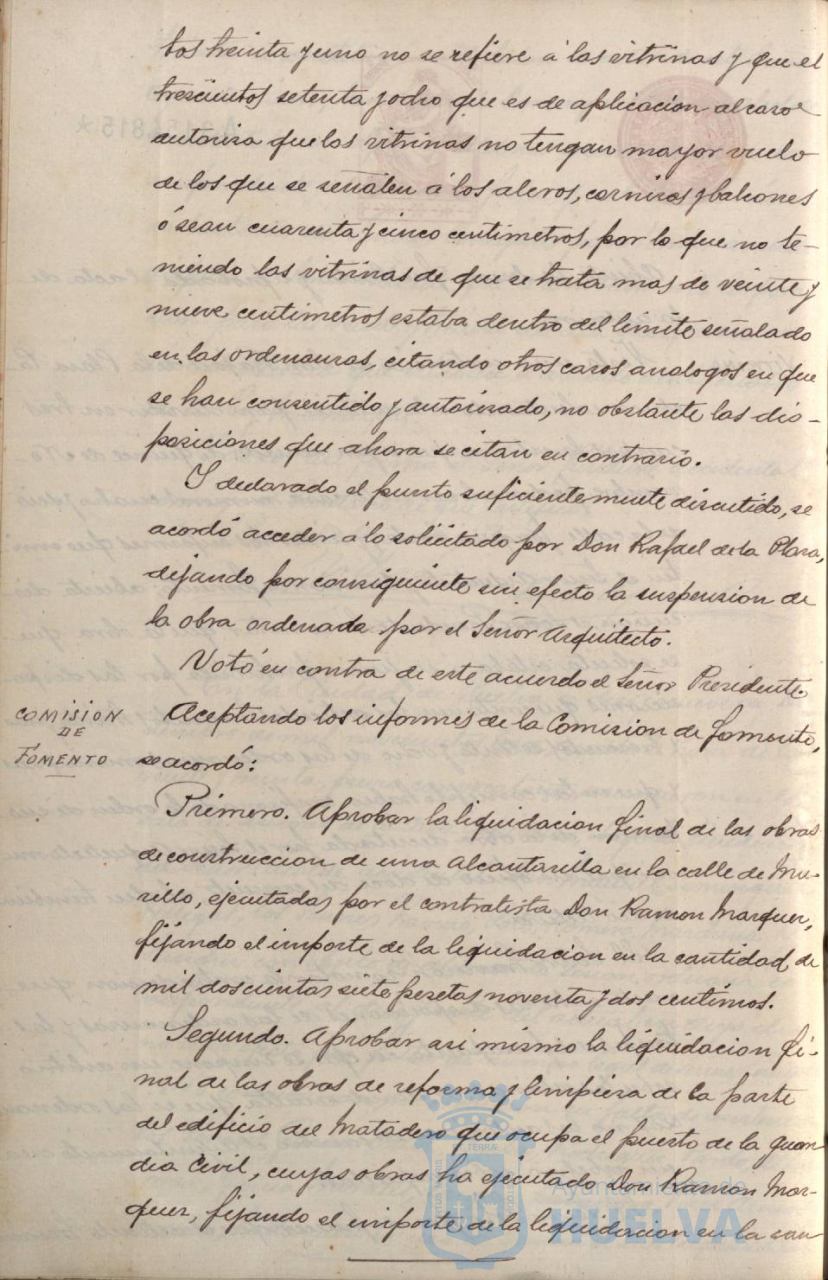 tos treinta y uno no se refiere á las vitrinas y que el
trescientos setenta y ocho que es de aplicacion al caso
autoriza que las vitrinas no tengan mayor vuelo
de los que se señalen á los aleros, cornisas y balcones
ó sean cuarenta y cinco centimetros, por lo que no te-
niendo las vitrinas de que se trata mas de veinte y
nueve centimetros estaba dentro del limite señalado
en las ordenanzas, citando otros casos analogos en que
se han consentido y autorizado, no obstante las dis-
posiciones que ahora se citan en contrario.
Y declarado el punto suficientemente discutido, se
acordó acceder á lo solicitado por Don Rafael de la Plaza,
dejando por consiguiente sin efecto la suspension de
la obra ordenada por el Señor Arquitecto.
Votó en contra de este acuerdo el Señor Presidente.
COMISION
DE
FOMENTO
Aceptando los informes de la Comision de fomento,
se acordó:
Primero. Aprobar la liquidacion final de las obras
de construccion de una alcantarilla en la calle de Mu-
rillo, ejecutadas por el contratista Don Ramon Marquez,
fijando el importe de la liquidacion en la cantidad de
mil doscientas siete pesetas noventa y dos centimos.
Segundo. Aprobar asi mismo la liquidacion fi-
nal de las obras de reforma y limpieza de la parte
del edificio del Matadero que ocupa el puesto de la guar
dia Civil, cuyas obras ha ejecutado Don Ramon Mar-
quez, fijando el importe de la liquidacion en la can
Ayuntamiento de
HUELVA